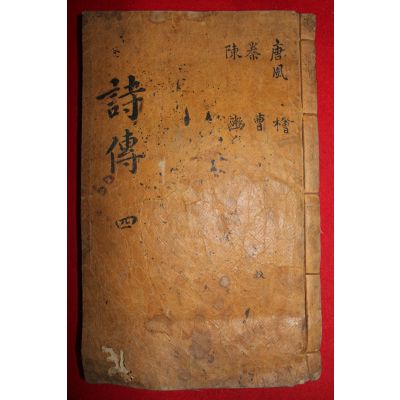 唐風 檜
秦 曹
陳 豳
詩傳 四